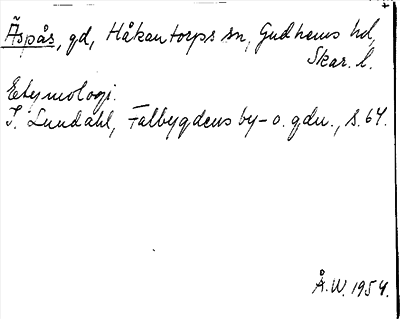 Äspås, gd, Håkantorps sn, Gudhems hd,
Skar. l.
Etymologi.
I. Lundahl, Falbygdens by- o. gdn., s. 64.
Å. W. 1954.